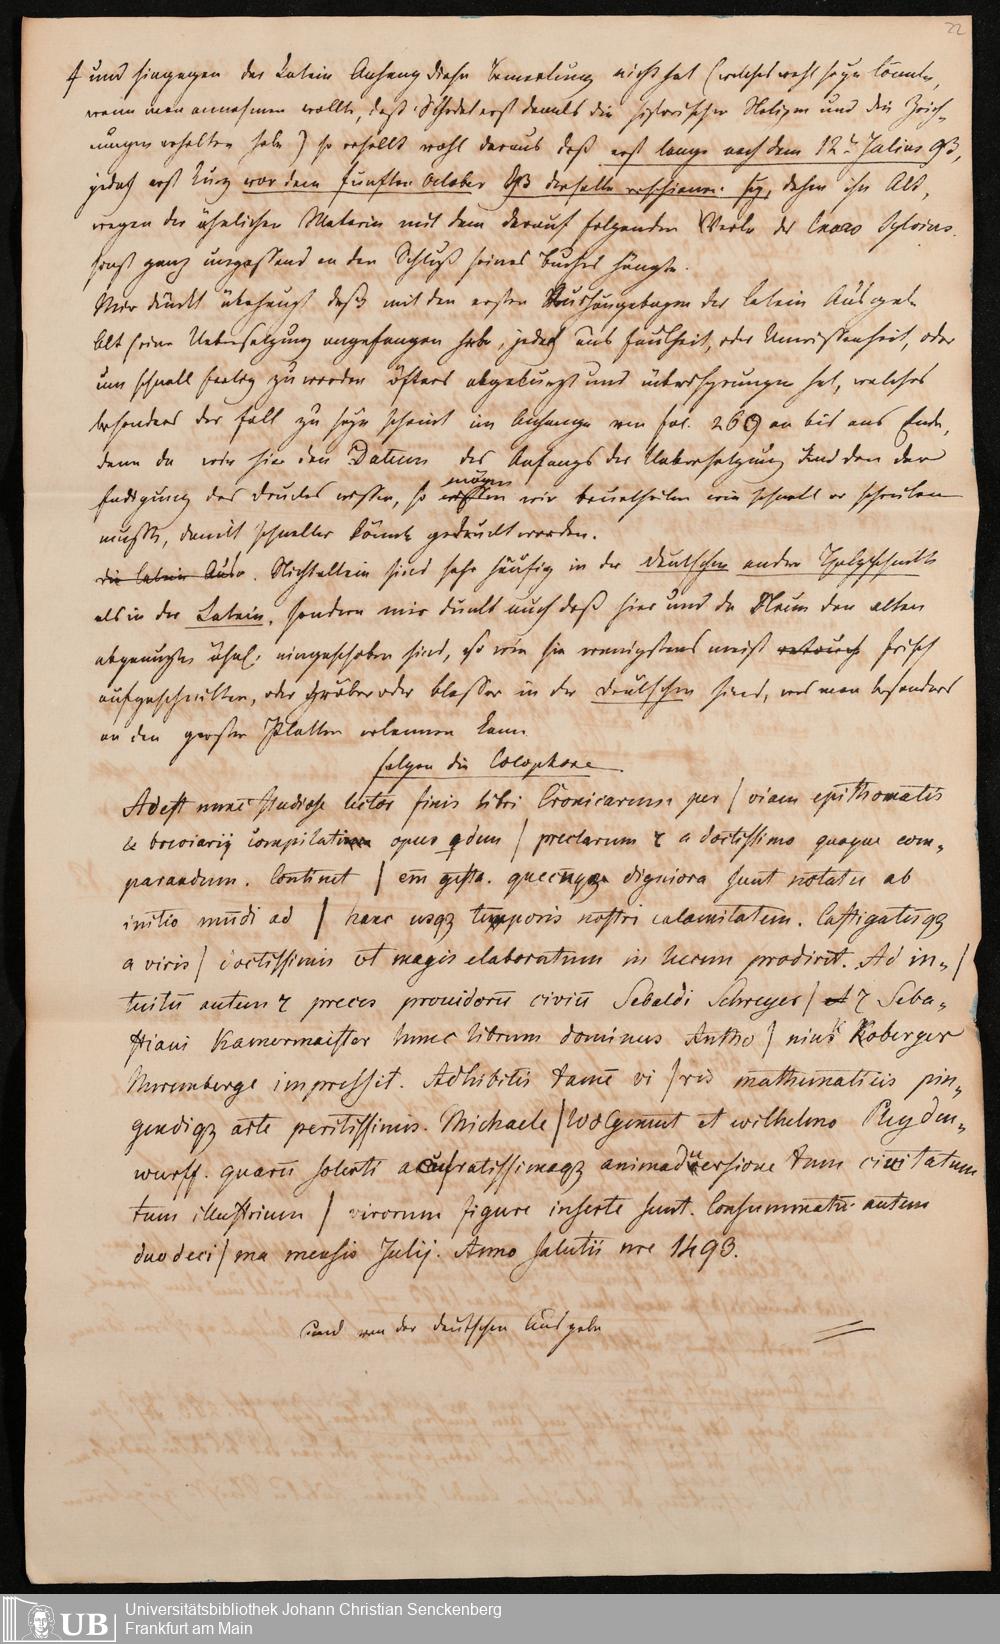 22
4 und hingegen der Latein Anhang diese Bemerkung nicht hat (welches wohl seyn könnte,
wenn man annehmen wollte, daß Schedel erst damals die historischen Notizen und die Zeich-
nungen erhalten habe) so erhellt wohl daraus daß erst lange nach dem 12t. Julius 93,
jedoch erst kurz vor dem fünften October 93 derselbe erschienen sey, daher ihn Alt,
wegen der ähnlichen Materie mit dem darauf folgenden Werke des Enaeo Sylvius
sonst ganz unpassend an den Schluß seines Buches hängte.
Mir dünkt überhaupt daß mit den ersten Aushängebogen der latein Ausgabe
Alt seine Uebersetzung angefangen habe, jedoch aus Faulheit, oder Unwissenheit, oder
um schnell fertig zu werden öfters abgekürzt und übersprungen hat, welches
besonders der Fall zu seyn scheint im Anhange von fol. 269 an bis ans Ende,
denn da wir hier den Datum des Anfangs der Uebersetzung und den der
Endigung des Druckes wissen, so mögen wir beurtheilen wie schnell er schreiben
mußte, damit schneller könnte gedruckt werden.
die latein Ausg. Nicht allein sind sehr häufig in der deutschen andre Holzschnitte
als in der Latein, sondern mir dünkt auch daß hier und da statt den alten
abgenutzten ähnl: eingeschoben sind, so wie sie wenigstens meist retouch frisch
aufgeschnitten, oder gröber oder blasser in der deutschen sind, was man besonders
an den großen Platten erkennen kann.
folgen die Colophone
Adest nunc studiose lector finis libri Cronicarum per / viam epithomatis
et breviarij compilati opus qdem / preclarum & a doctissimo quoque com-
parandum. Continet / em gesta. quecunqz digniora sunt notatu ab
initio mundi ad / hanc usqz temporis nostri calamitatem. Castigatuqz
a viris / doctissimis ut magis elaboratum in lucem prodiret. Ad in- /
tuitu autem & preces prouidoru civiu Sebaldi Schreyer / et & Seba-
stiani Kamermaister hunc librum dominus Antho / nius Koberger
Nuremberge impressit. Adhibitis tame vi / ris mathematicis pin-
gendiqz arte peritissimis. Michaele / Wolgemut et wilhelmo Pleyden-
wurff. quaru solerti acuratissimaqz animaduersione tum ciuitatum
tum illustrium / virorum figure inserte sunt. Consummatu autem
duodeci / ma mensis Julij. Anno salutis nre 1493.
und von der deutschen Ausgabe
UB
Universitätsbibliothek Johann Christian Senckenberg
Frankfurt am Main